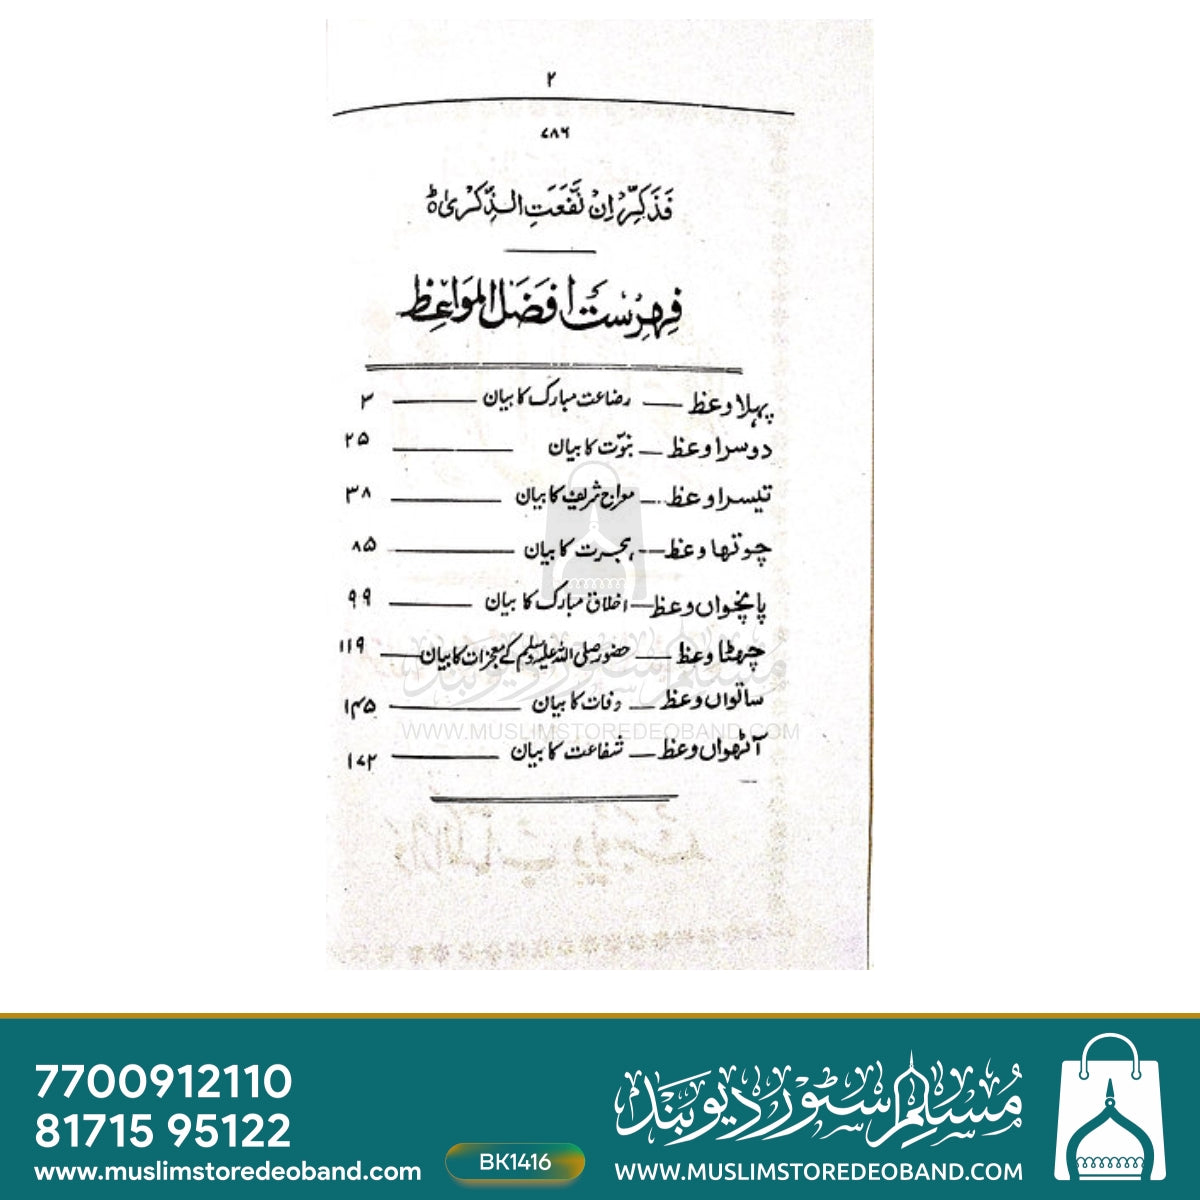 ۲
۷۸۶
فَذَكِّرْ اِنْ نَّفَعَتِ الذِّكْرٰى ہ
فہرست افضل المواعظ
پہلا وعظ — رضاعت مبارک کا بیان — ۳
دوسرا وعظ — نبوّت کا بیان — ۲۵
تیسرا وعظ — معراج شریف کا بیان — ۳۸
چوتھا وعظ — ہجرت کا بیان — ۸۵
پانچواں وعظ — اخلاق مبارک کا بیان — ۹۹
چھٹا وعظ — حضور صلی اللہ علیہ وسلم کے معجزات کا بیان — ۱۱۹
ساتواں وعظ — وفات کا بیان — ۱۴۵
آٹھواں وعظ — شفاعت کا بیان — ۱۷۲
مسلم سٹور دیوبند
WWW.MUSLIMSTOREDEOBAND.COM
7700912110
81715 95122
www.muslimstoredeoband.com
BK1416
مسلم سٹور دیوبند
WWW.MUSLIMSTOREDEOBAND.COM